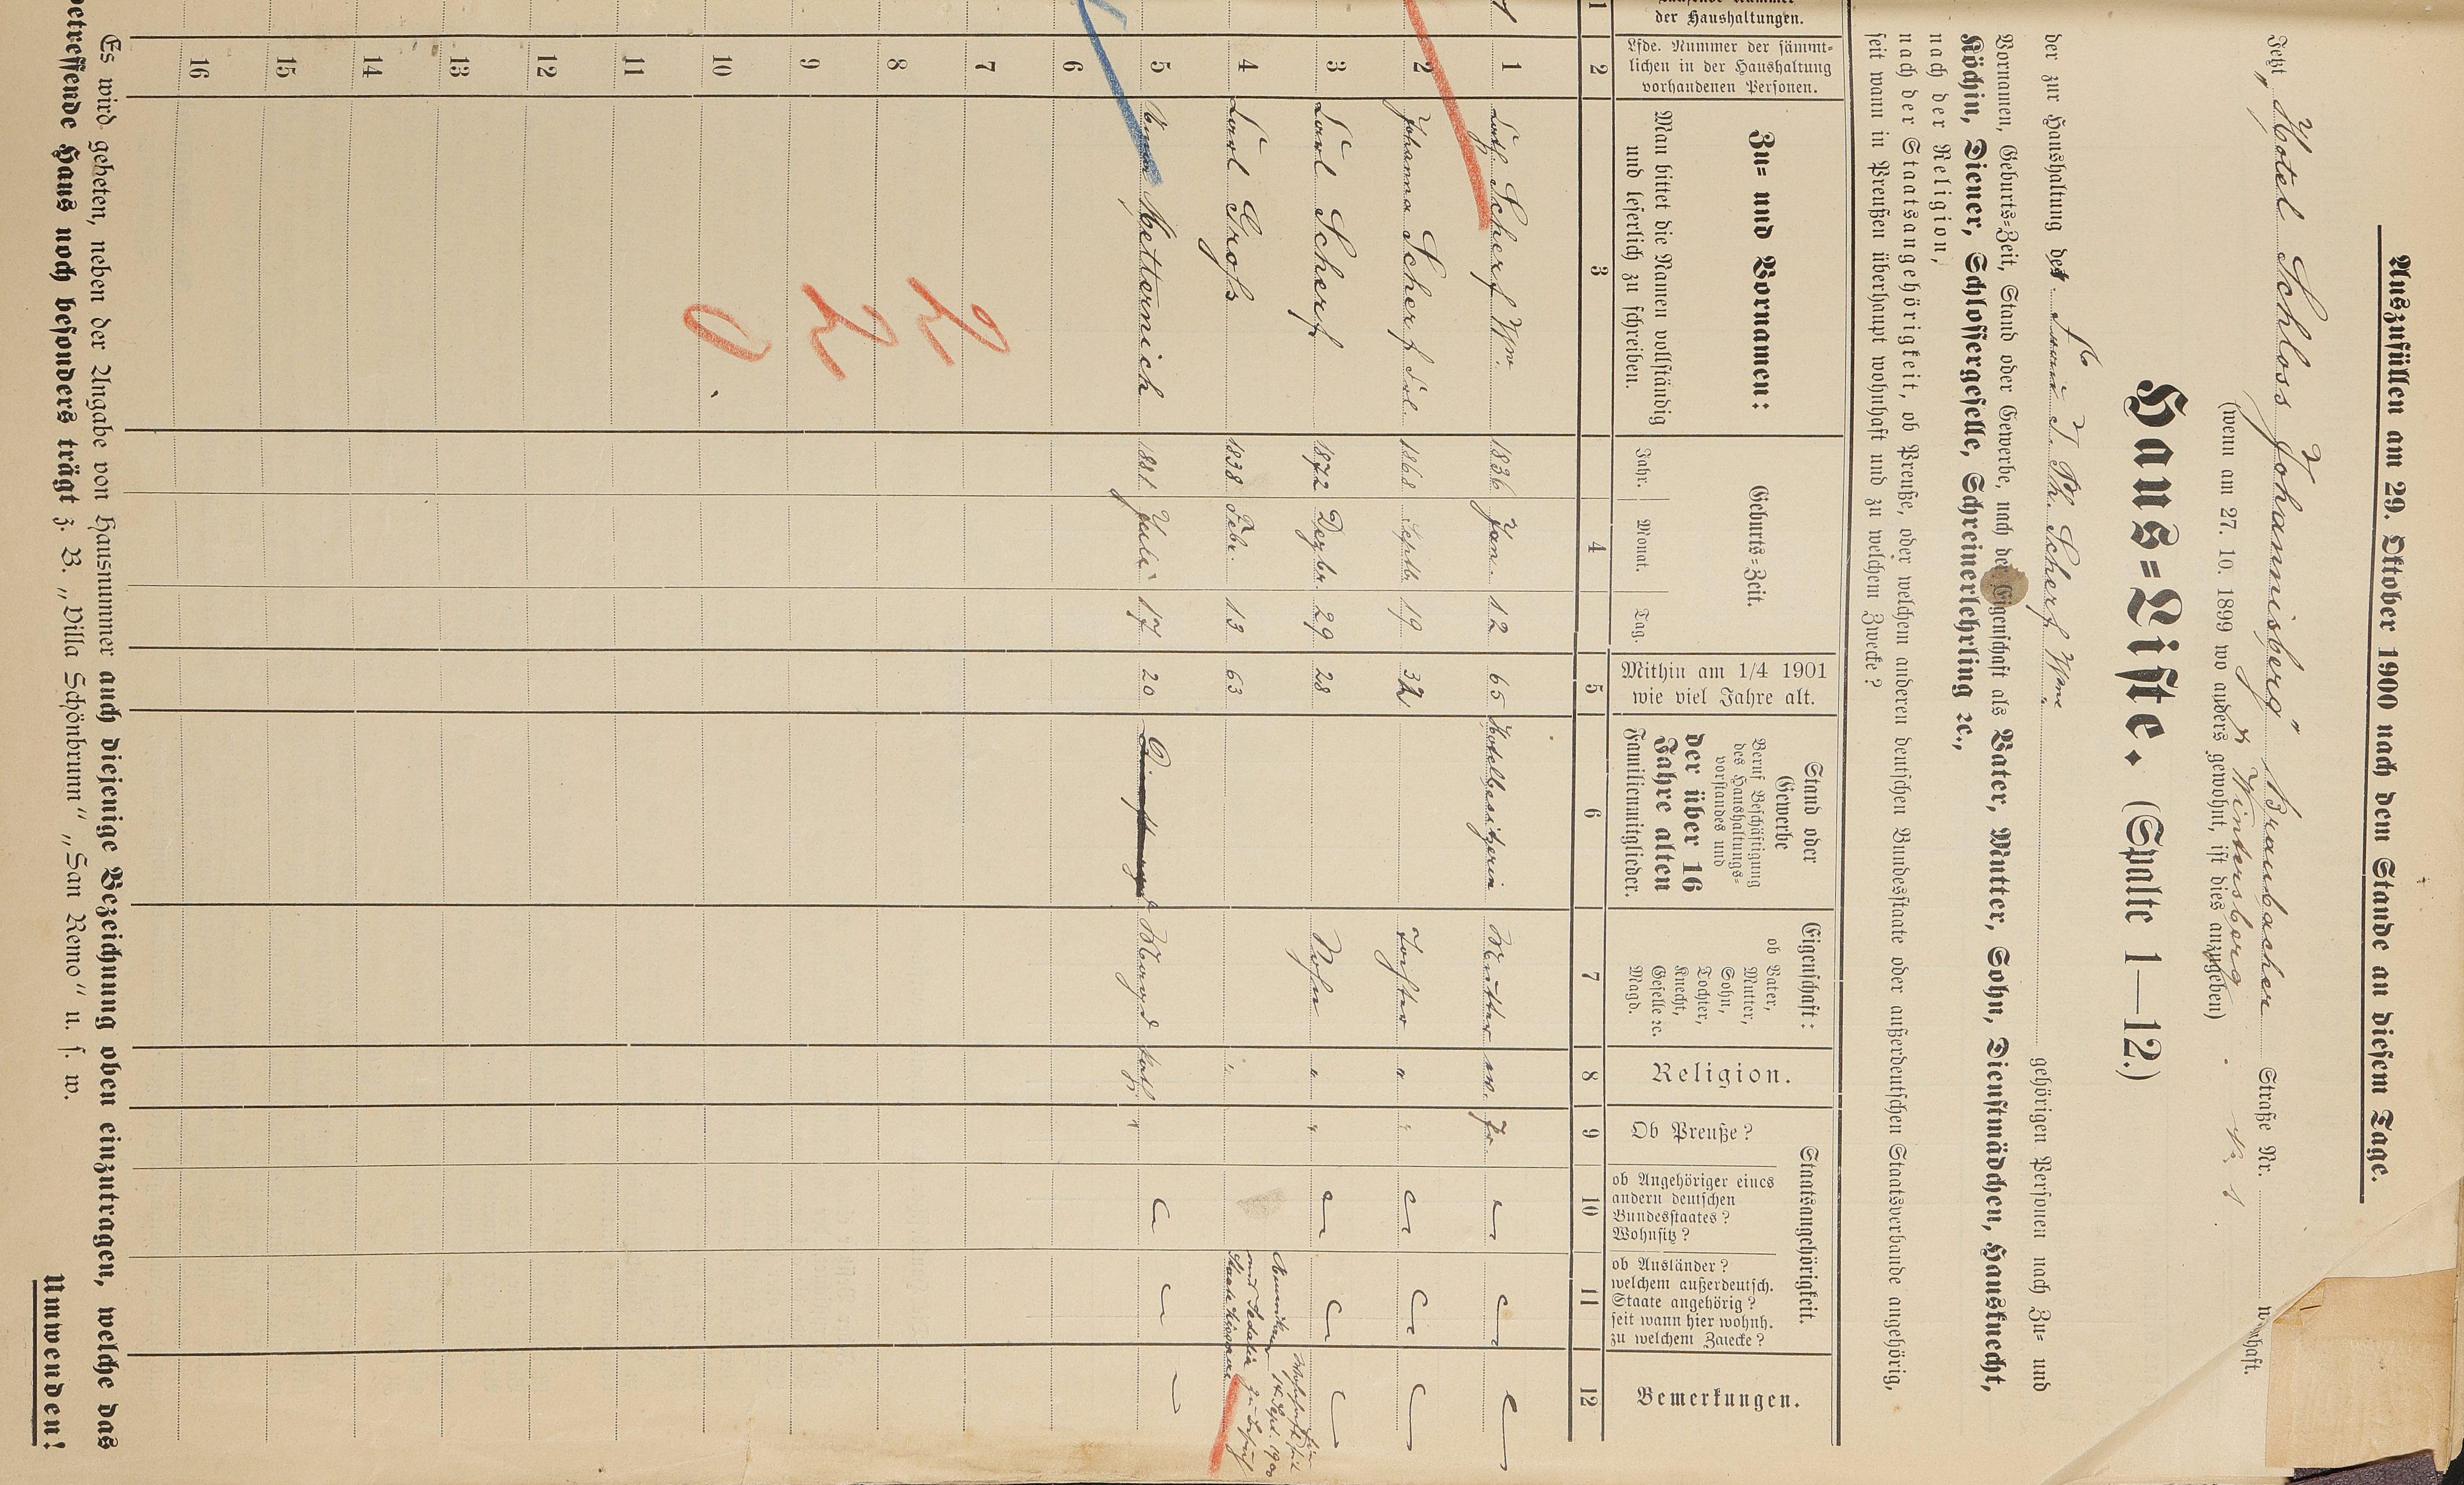 Auszufüllen am 29. Oktober 1900 nach dem Stande an diesem Tage.
Jetzt „Hotel Schloss Johannisberg" Braubacher Straße Nr. wohnhaft.
Wintersberg No 1
(wenn am 27. 10. 1899 wo anders gewohnt, ist dies anzugeben)
Haus=Liste. (Spalte 1—12.)
der zur Haushaltung des Frau J. Ph. Scherf Wwe. gehörigen Personen nach Zu= und
Vornamen, Geburts=Zeit, Stand oder Gewerbe, nach der Eigenschaft als Vater, Mutter, Sohn, Dienstmädchen, Hausknecht,
Köchin, Diener, Schlossergeselle, Schreinerlehrling ꝛc.,
nach der Religion,
nach der Staatsangehörigkeit, ob Preuße, oder welchem anderen deutschen Bundesstaate oder außerdeutschen Staatsverbande angehörig,
seit wann in Preußen überhaupt wohnhaft und zu welchem Zwecke?
der Haushaltungen.
Lfde. Nummer der sämmt=
lichen in der Haushaltung
vorhandenen Personen.
Zu= und Vornamen:
Man bittet die Namen vollständig
und leserlich zu schreiben.
Geburts=Zeit.
Jahr. Monat. Tag.
Mithin am 1/4 1901
wie viel Jahre alt.
Stand oder
Gewerbe
Beruf Beschäftigung
des Haushaltungs=
vorstandes und
der über 16
Jahre alten
Familienmitglieder.
Eigenschaft:
ob Vater,
Mutter,
Sohn,
Tochter,
Knecht,
Geselle ꝛc.
Magd.
Religion.
Staatsangehörigkeit.
Ob Preuße?
ob Angehöriger eines
andern deutschen
Bundesstaates?
Wohnsitz?
ob Ausländer?
welchem außerdeutsch.
Staate angehörig?
seit wann hier wohnh.
zu welchem Zwecke?
Bemerkungen.
1 2 3 4 5 6 7 8 9 10 11 12
1 1 Cath. Scherf Ww. 1836 Jan. 12 65 Hotelbesitzerin Mutter ev. Pr.
2 Johanna Scherf 1868 Septb 19 32 Tochter " "
3 Carl Scherf 1872 Dezbr. 29 28 Sohn " "
4 Carl Groß 1838 Febr. 13 63 "
5 Metternich 1881 Juli 17 20 Magd kath "
6
7
8
9
10
11
12
13
14
15
16
Es wird gebeten, neben der Angabe von Hausnummer auch diejenige Bezeichnung oben einzutragen, welche das
betreffende Haus noch besonders trägt z. B. „Villa Schönbrunn" „San Remo" u. s. w.
Umwenden!